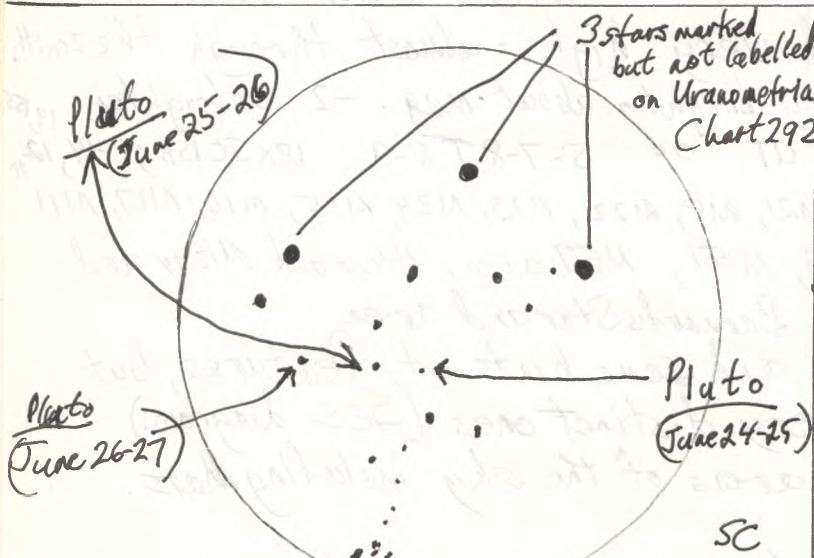 3 stars marked
but not labelled
on Uranometria
Chart 292
Pluto
(June 25-26)
Pluto
(June 26-27)
Pluto
(June 24-25)
SC